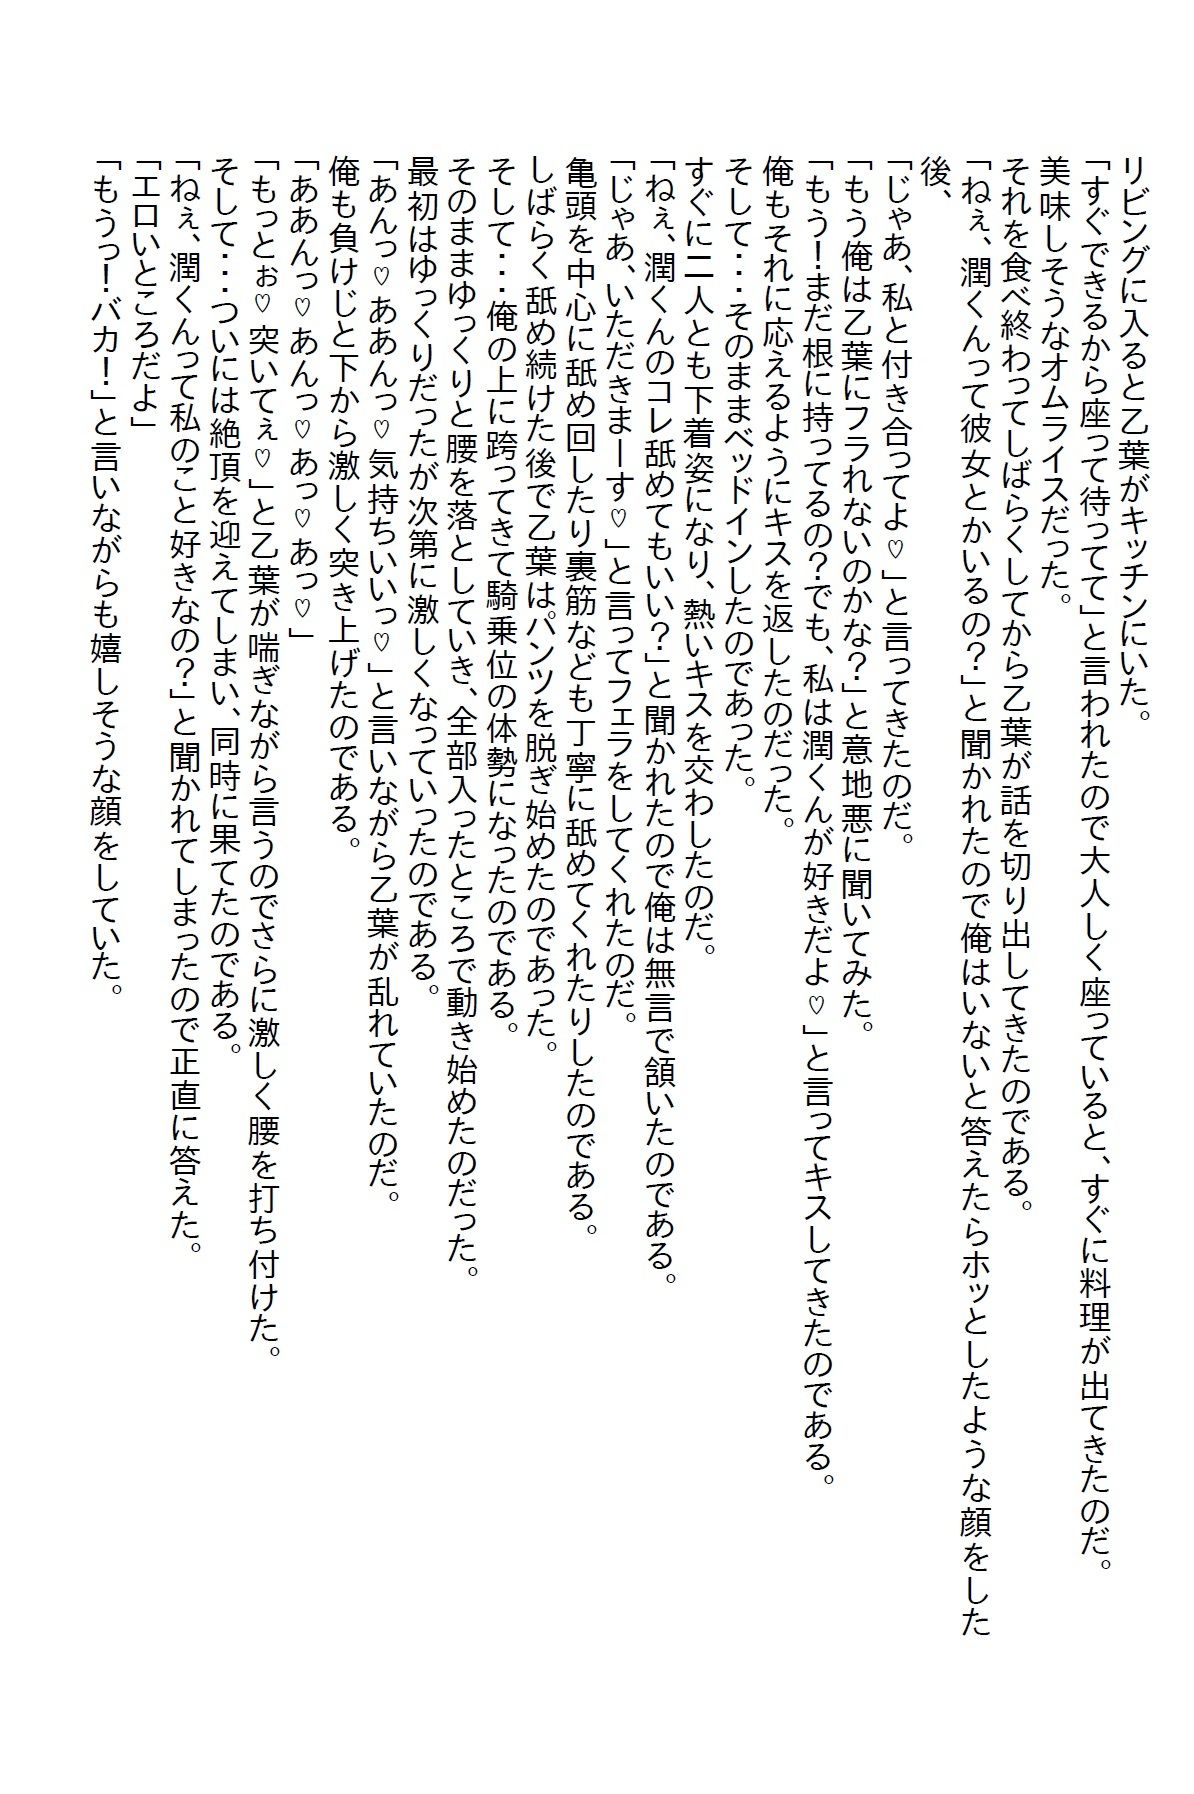 リビングに入ると乙葉がキッチンにいた。
「すぐできるから座って待ってて」と言われたので大人しく座っていると、すぐに料理が出てきたのだ。
美味しそうなオムライスだった。
それを食べ終わってしばらくしてから乙葉が話を切り出してきたのである。
「ねぇ、潤くんって彼女とかいるの？」と聞かれたので俺はいないと答えたらホッとしたような顔をした
後、
「じゃあ、私と付き合ってよ♡」と言ってきたのだ。
「もう俺は乙葉にフラれないのかな？」と意地悪に聞いてみた。
「もう！まだ根に持ってるの？でも、私は潤くんが好きだよ♡」と言ってキスしてきたのである。
俺もそれに応えるようにキスを返したのだった。
そして・・・そのままベッドインしたのであった。
すぐに二人とも下着姿になり、熱いキスを交わしたのだ。
「ねぇ、潤くんのコレ舐めてもいい？」と聞かれたので俺は無言で頷いたのである。
「じゃあ、いただきまーす♡」と言ってフェラをしてくれたのだ。
亀頭を中心に舐め回したり裏筋なども丁寧に舐めてくれたりしたのである。
しばらく舐め続けた後で乙葉はパンツを脱ぎ始めたのであった。
そして・・・俺の上に跨ってきて騎乗位の体勢になったのである。
そのままゆっくりと腰を落としていき、全部入ったところで動き始めたのだった。
最初はゆっくりだったが次第に激しくなっていったのである。
「あんっ♡ああんっ♡気持ちいいっ♡」と言いながら乙葉が乱れていたのだ。
俺も負けじと下から激しく突き上げたのである。
「ああんっ♡あんっ♡あっ♡あっ♡」
「もっとぉ♡突いてぇ♡」と乙葉が喘ぎながら言うのでさらに激しく腰を打ち付けた。
そして・・・ついには絶頂を迎えてしまい、同時に果てたのである。
「ねぇ、潤くんって私のこと好きなの？」と聞かれてしまったので正直に答えた。
「エロいところだよ」
「もうっ！バカ！」と言いながらも嬉しそうな顔をしていた。